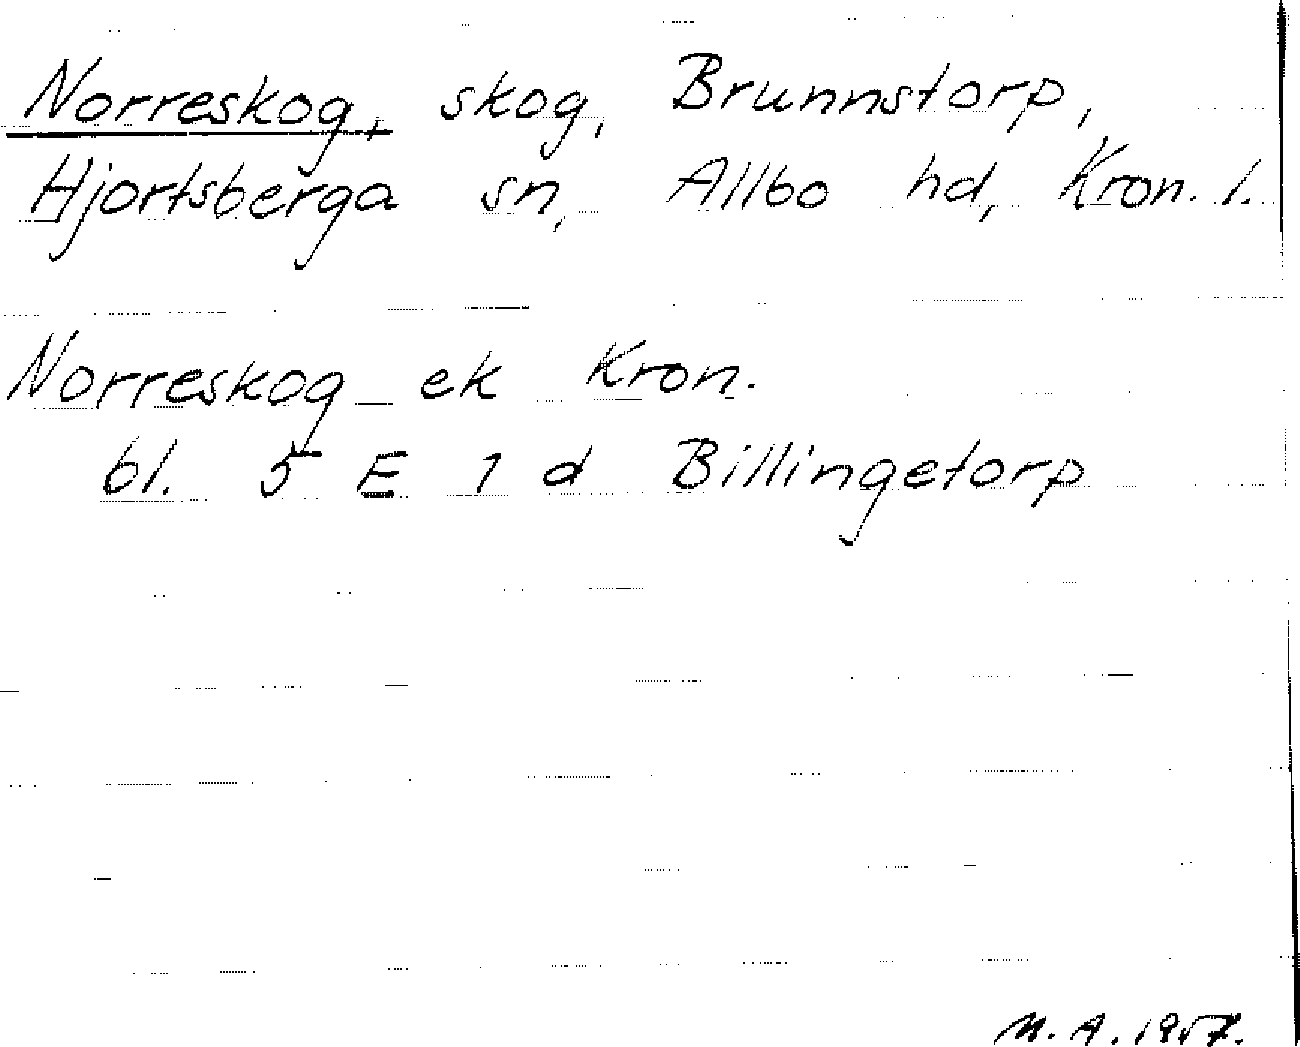 Norreskog, skog, Brunnstorp,
Hjortsberga sn, Allbo hd, Kron. l.
Norreskog ek Kron.
bl. 5 E 1 d Billingetorp
M. A. 1957.